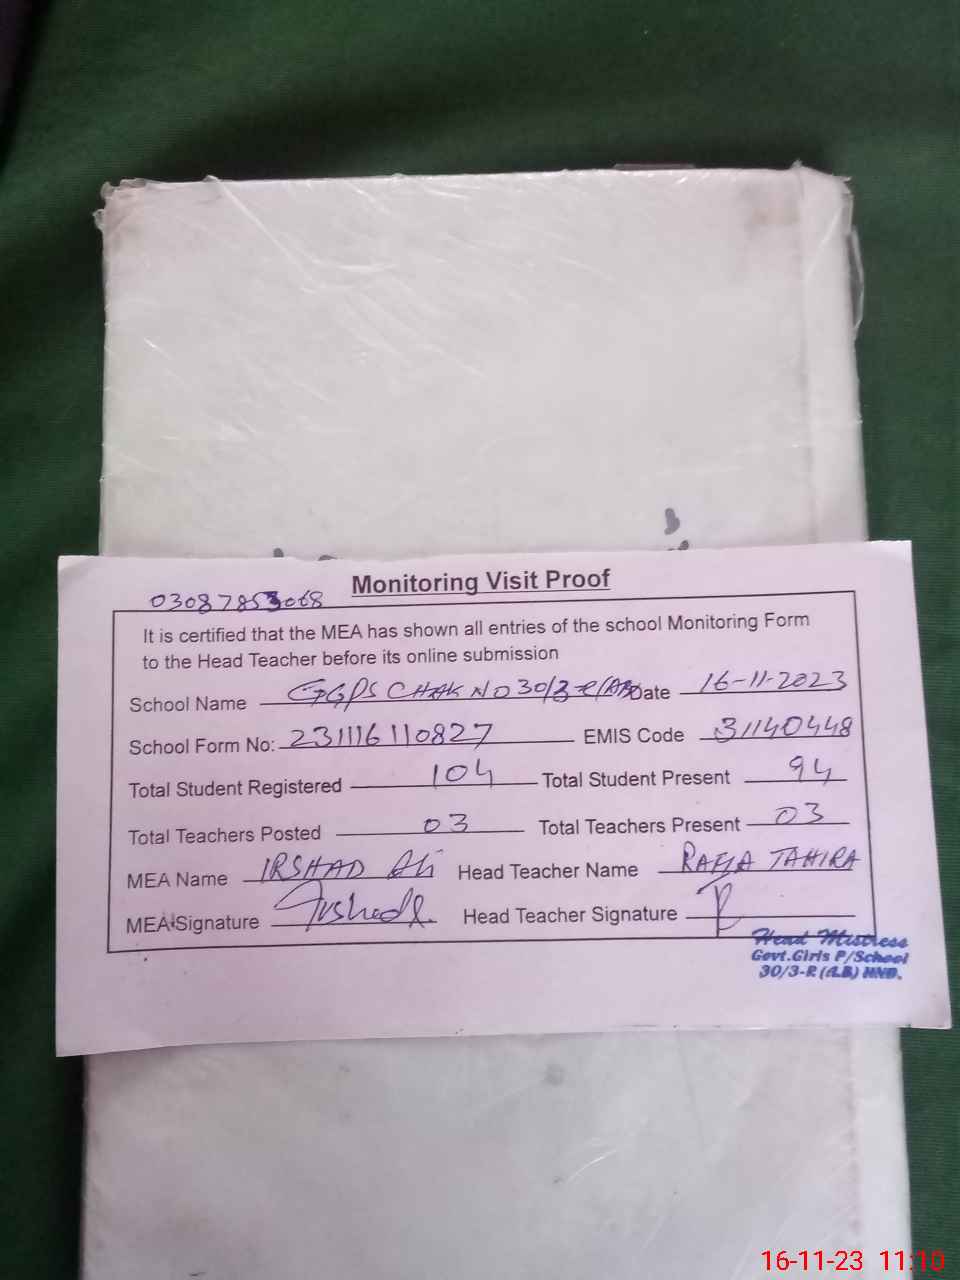 Monitoring Visit Proof
03087853068
It is certified that the MEA has shown all entries of the school Monitoring Form
to the Head Teacher before its online submission
School Name GGPS CHAK NO 30/3-R(AB) Date 16-11-2023
School Form No: 231116110827 EMIS Code 31140448
Total Student Registered 104 Total Student Present 94
Total Teachers Posted 03 Total Teachers Present 03
MEA Name IRSHAD Ali Head Teacher Name RAFIA TAHIRA
MEA Signature Irshad Head Teacher Signature
Head Mistress
Govt.Girls P/School
30/3-R (4.B) HND.
16-11-23 11:10